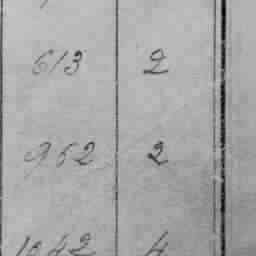 613 2
962 2
1042 4